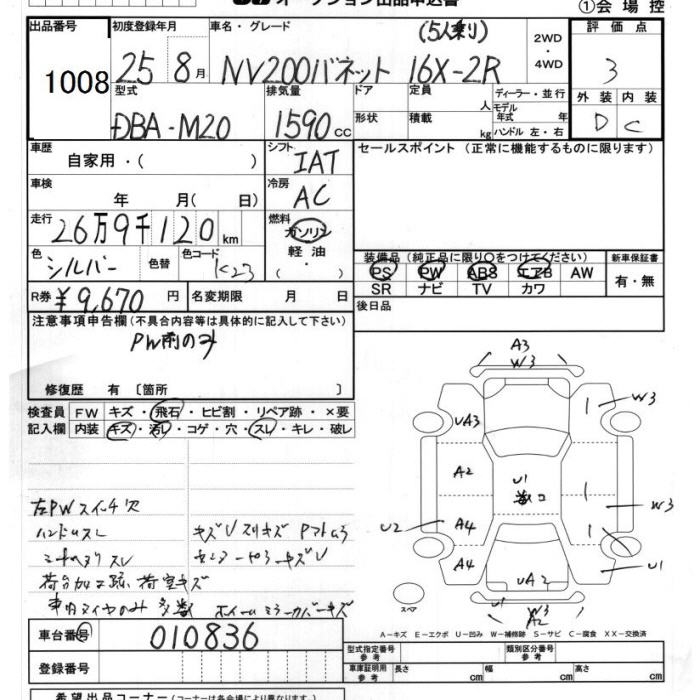 オークション出品申込書
①会場控
出品番号
1008
初度登録年月
25 8月
車名・グレード
(5人乗り)
NV200バネット 16X-2R
2WD
・
4WD
評価点
3
外装 内装
D C
型式
DBA-M20
排気量
1590cc
ドア
形状
定員
人
積載
kg
ディーラー・並行
モデル
年式 年
ハンドル 左・右
車歴
自家用・( )
シフト
IAT
セールスポイント(正常に機能するものに限ります)
車検
年 月( 日)
冷房
AC
走行
26万9千120km
燃料
ガソリン
軽油
( )
色
シルバー
色替
色コード
K23
装備品(純正品に限り○をつけてください)
PS PW ABS エアB AW
SR ナビ TV カワ
新車保証書
有・無
R券
¥9,670円
名変期限 月 日
後日品
注意事項申告欄(不具合内容等は具体的に記入して下さい)
PW前のみ
修復歴 有〔箇所 〕
検査員
記入欄
FW キズ・飛石・ヒビ割・リペア跡・×要
内装 キズ・汚れ・コゲ・穴・スレ・キレ・破レ
左PWスイッチ欠
ハンドルスレ
車内タイヤのみ
ホイールミラーカバーキズ
A3
W3
UA3
A2
A4
A4
U2
U1
UA2
U1
W3
A2
W3
W3
U1
スペア
A-キズ E-エクボ U-凹み W-補修跡 S-サビ C-腐食 XX-交換済
車台番号
010836
登録番号
型式指定番号
参考
類別区分番号
参考
車庫証明用
参考
長さ cm 幅 cm 高さ cm
希望出品コーナー(コーナーは各会場により異なります)